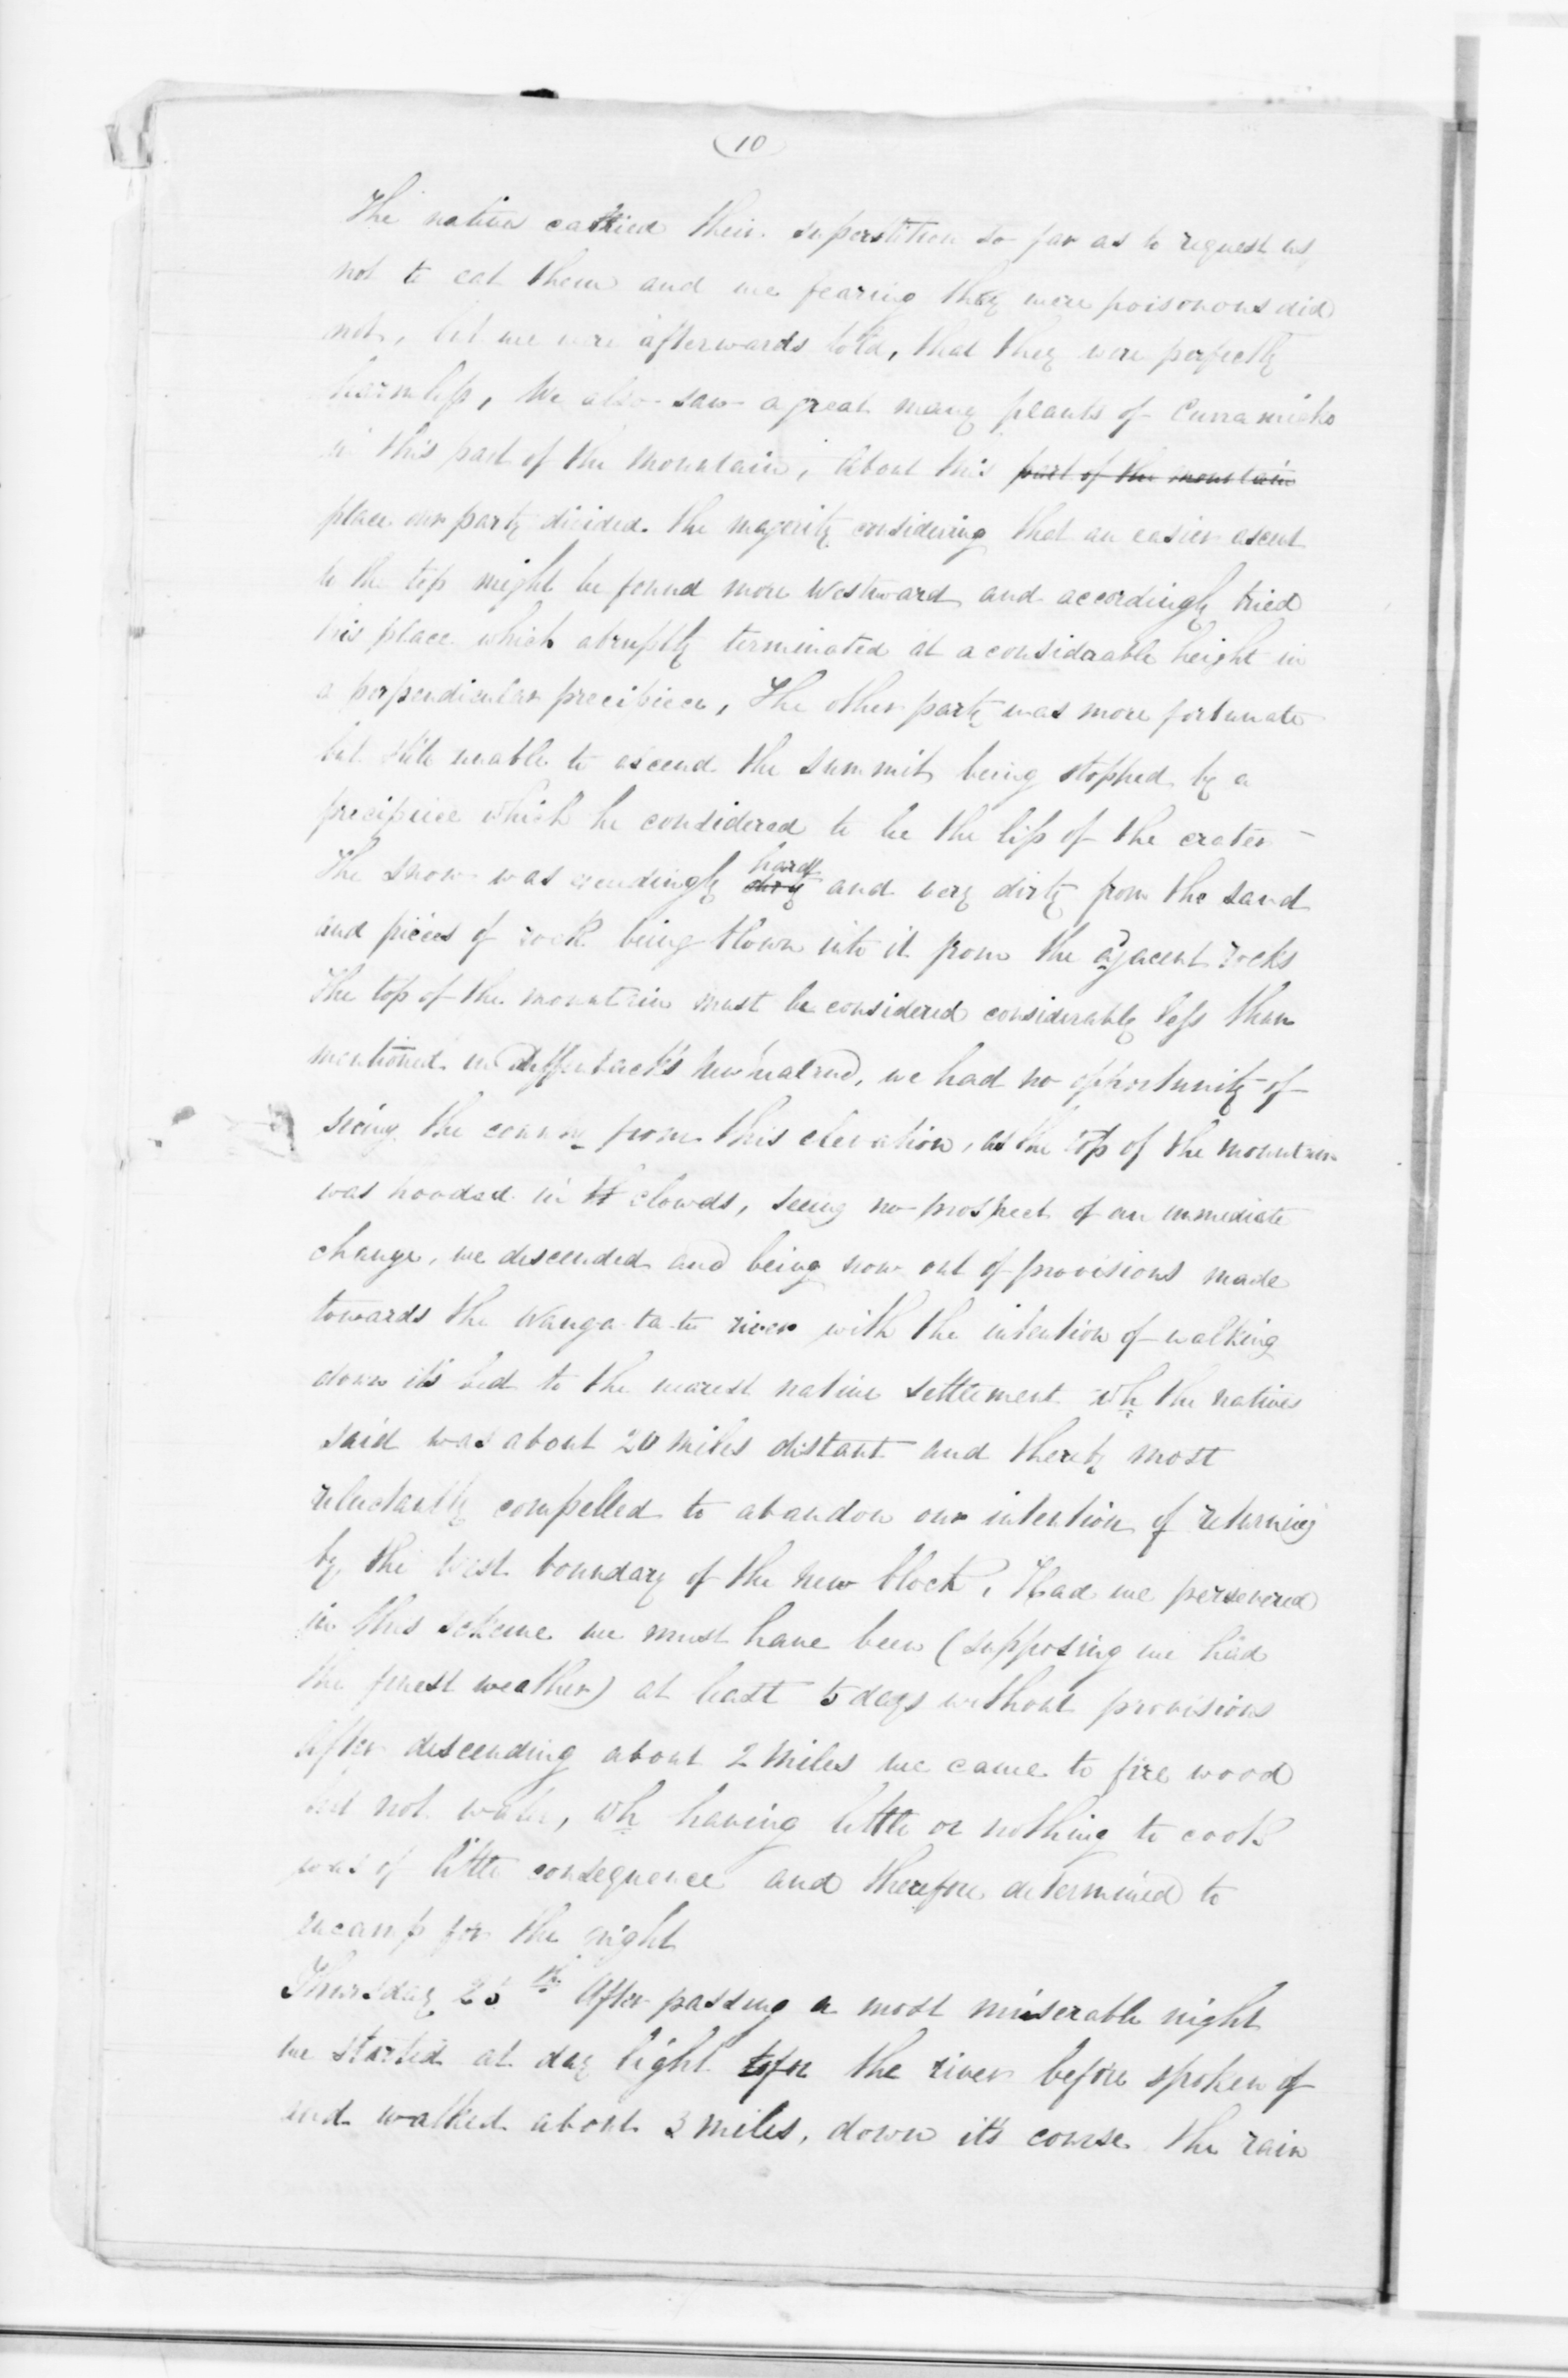 10
The natives carried their superstition so far as to request us
not to eat them and we fearing they were poisonous did
not, but we were afterwards told, that they were perfectly
harmless, We also saw a great many plants of
in this part of the mountain, About this part of the mountain
place our party divided. The majority considering that an easier ascent
to the top might be found more Westward and accordingly tried
this place which abruptly terminated at a considerable height in
a perpendicular precibice, The other party was more fortunate
but still unable to ascend the summit, being stopped by a
precipiece which he considered to be the lip of the crater -
The snow was exceedingly dirty hard and very dirty from the sand
and pieces of rock being blown into it from the ajacent rocks
The top of the mountain must be considered considerably less than
mentioned in Dieffenback's New Zealand, we had no opportunity of
seeing the country from this elevation, as the top of the mountain
was hooded in clowds, seeing no prospect of an immediate
change, we descended and being now out of provisions made
towards the Wanga-ta-te river with the intention of walking
down it's bed to the nearest native settlement wh the natives
said was about 20 miles distant and thereby most
reluctantly compelled to abandon our intention of returning
by the West boundary of the New block, Had we persevered
in this scheme we must have been (supposing we had
the finest weather) at least 5 days without provisions
After descending about 2 miles we came to fire wood
but not water, wh having little or nothing to cook
was of little consequence and therefore determined to
encamp for the night
Thursday 25th After passing a most miserable night
we started at day light for the river before spoken of
and walked about 3 miles, down it's course the rain